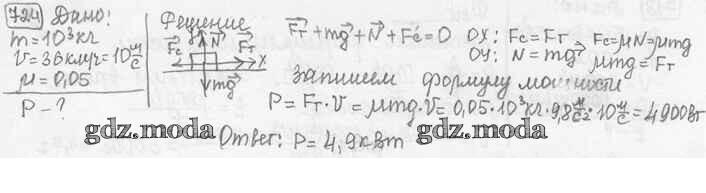 724 Дано:
m = 10³кг
V = 36км/ч = 10 м/с
μ = 0,05
P - ?
Решение
F⃗c N⃗ F⃗т
x
mg⃗
F⃗т + mg⃗ + N⃗ + F⃗c = 0 OX: Fc = Fт Fc = μN = μmg
OY: N = mg⃗ μmg = Fт
Запишем формулу мощности
P = Fт · V = μmg · V = 0,05 · 10³кг · 9,8 м/с² · 10 м/с = 4900Вт
gdz.moda gdz.moda
Ответ: P = 4,9кВт